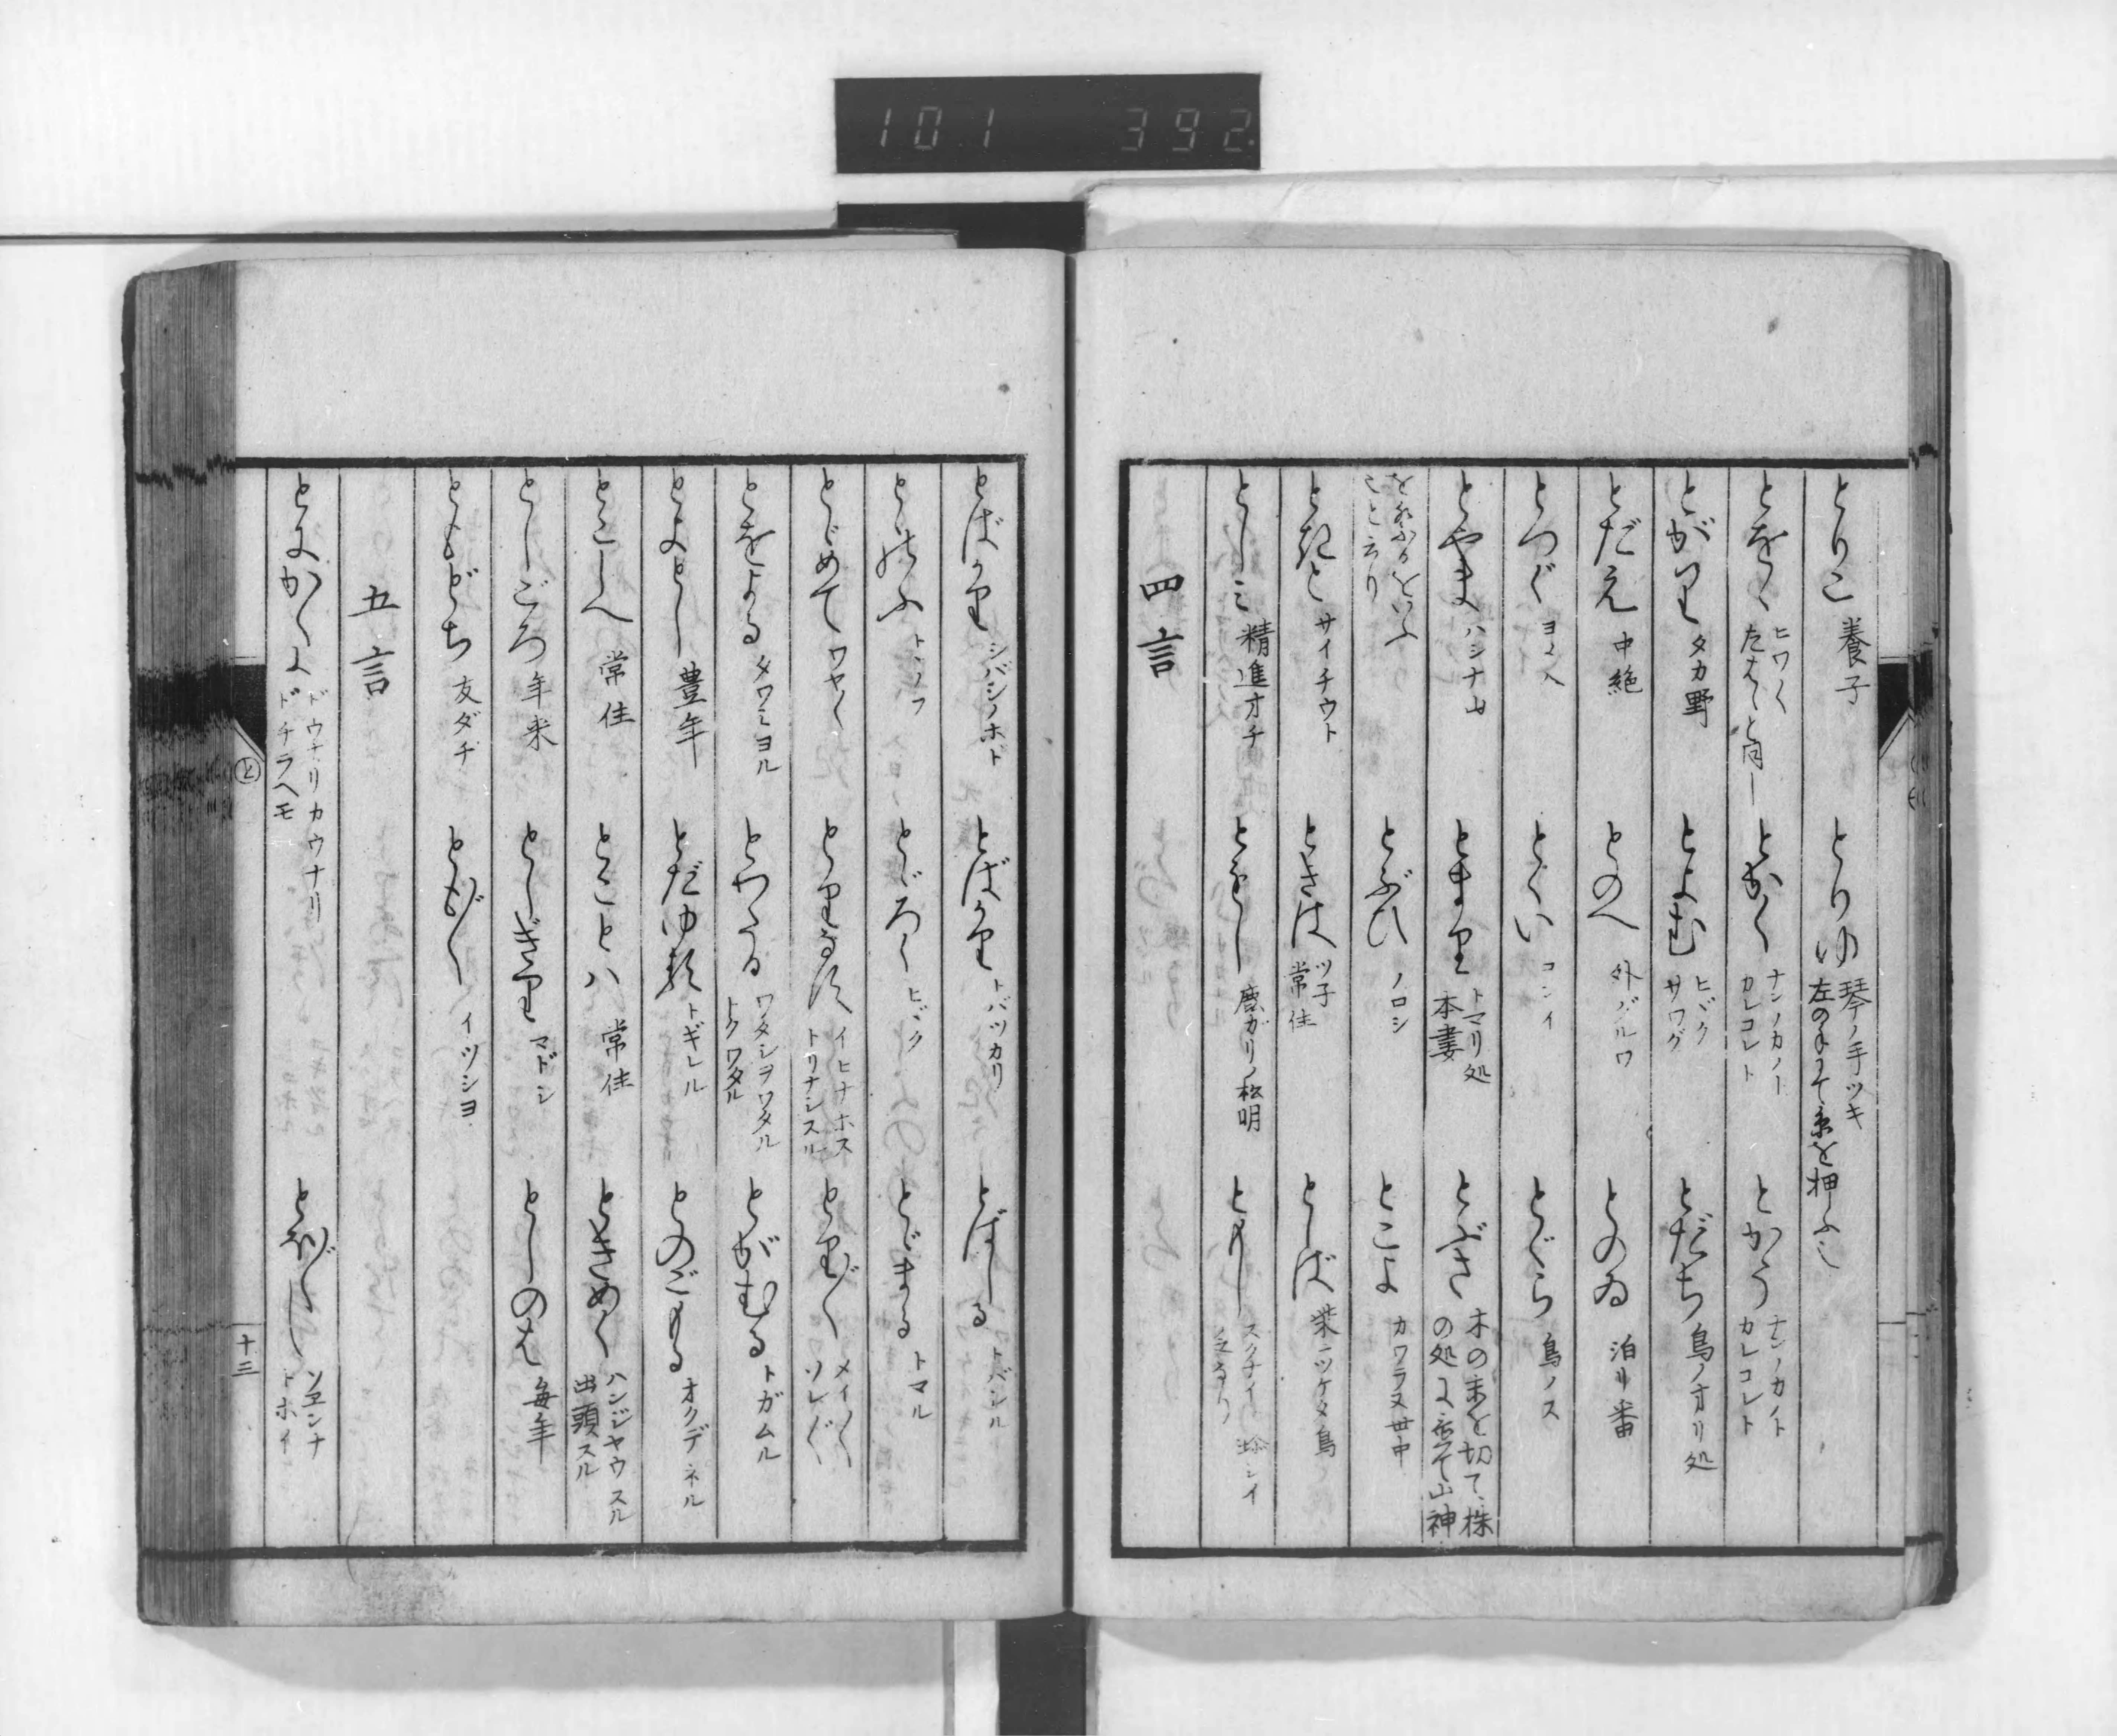 101 392
とりこ 養子
とりゆ 琴ノ手ツキ 左の手にて糸を押ふ也
とをゝ ヒワ〱 たわゝと同し
とかく ナンノカノト カレコレト
とかう ナンノカノト カレコレト
とがり タカ野
とよむ ヒヾク サワグ
とだち 鳥ノオリ処
とだえ 中絶
とのへ 外グルワ
とのゐ 泊リ番
とつぐ
とくい コンイ
とぐら 鳥ノス
とやま ハシナ山
とまり トマリ処 本妻
とぶさ 木の末を切て株の処に立て山神
ことを云り
とぶひ ノロシ
とこよ カワラヌ世中
サイチウト
ときは ツ子 常住
としば 柴ニツケタ鳥
としミ 精進オチ
ともし 鹿ガリノ松明
ともし スクナイ
四言
とばかり シバシノホド
とばかり トバツカリ
とばしる トバシル
とゝのふ トヽノフ
とゞろく ヒヾク
とゞまる トマル
とじめて ワヤ〱
とりなす イヒナホス トリナシスル
とり〲 メイ〱 ソレ〲
とをよる タワミヨル
とわたる ワタシヲワタル トクワタル
とがむる トガムル
とよとし 豊年
とだゆる トギレル
とのごもる オクデネル
とこしへ 常住
とことハ 常住
ときめく ハンジヤウスル 出頭スル
としごろ 年来
としぎり マドシ
としのは 毎年
ともどち 友ダチ
とも〲 イツシヨ
五言
とにかくに ドウナリカウナリ ドチラヘモ
と
十三